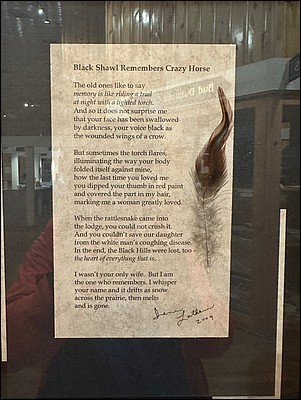 Black Shawl Remembers Crazy Horse
The old ones like to say
memory is like riding a trail
at night with a lighted torch.
And so it does not surprise me
that your face has been swallowed
by darkness, your voice black as
the wounded wings of a crow.
But sometimes the torch flares,
illuminating the way your body
folded itself against mine,
how the last time you loved me
you dipped your thumb in red paint
and covered the part in my hair,
marking me a woman greatly loved.
When the rattlesnake came into
the lodge, you could not crush it.
And you couldn't save our daughter
from the white man's coughing disease.
In the end, the Black Hills were lost, too -
the heart of everything that is.
I wasn't your only wife. But I am
the one who remembers. I whisper
your name and it drifts as snow
across the prairie, then melts
and is gone.
2009